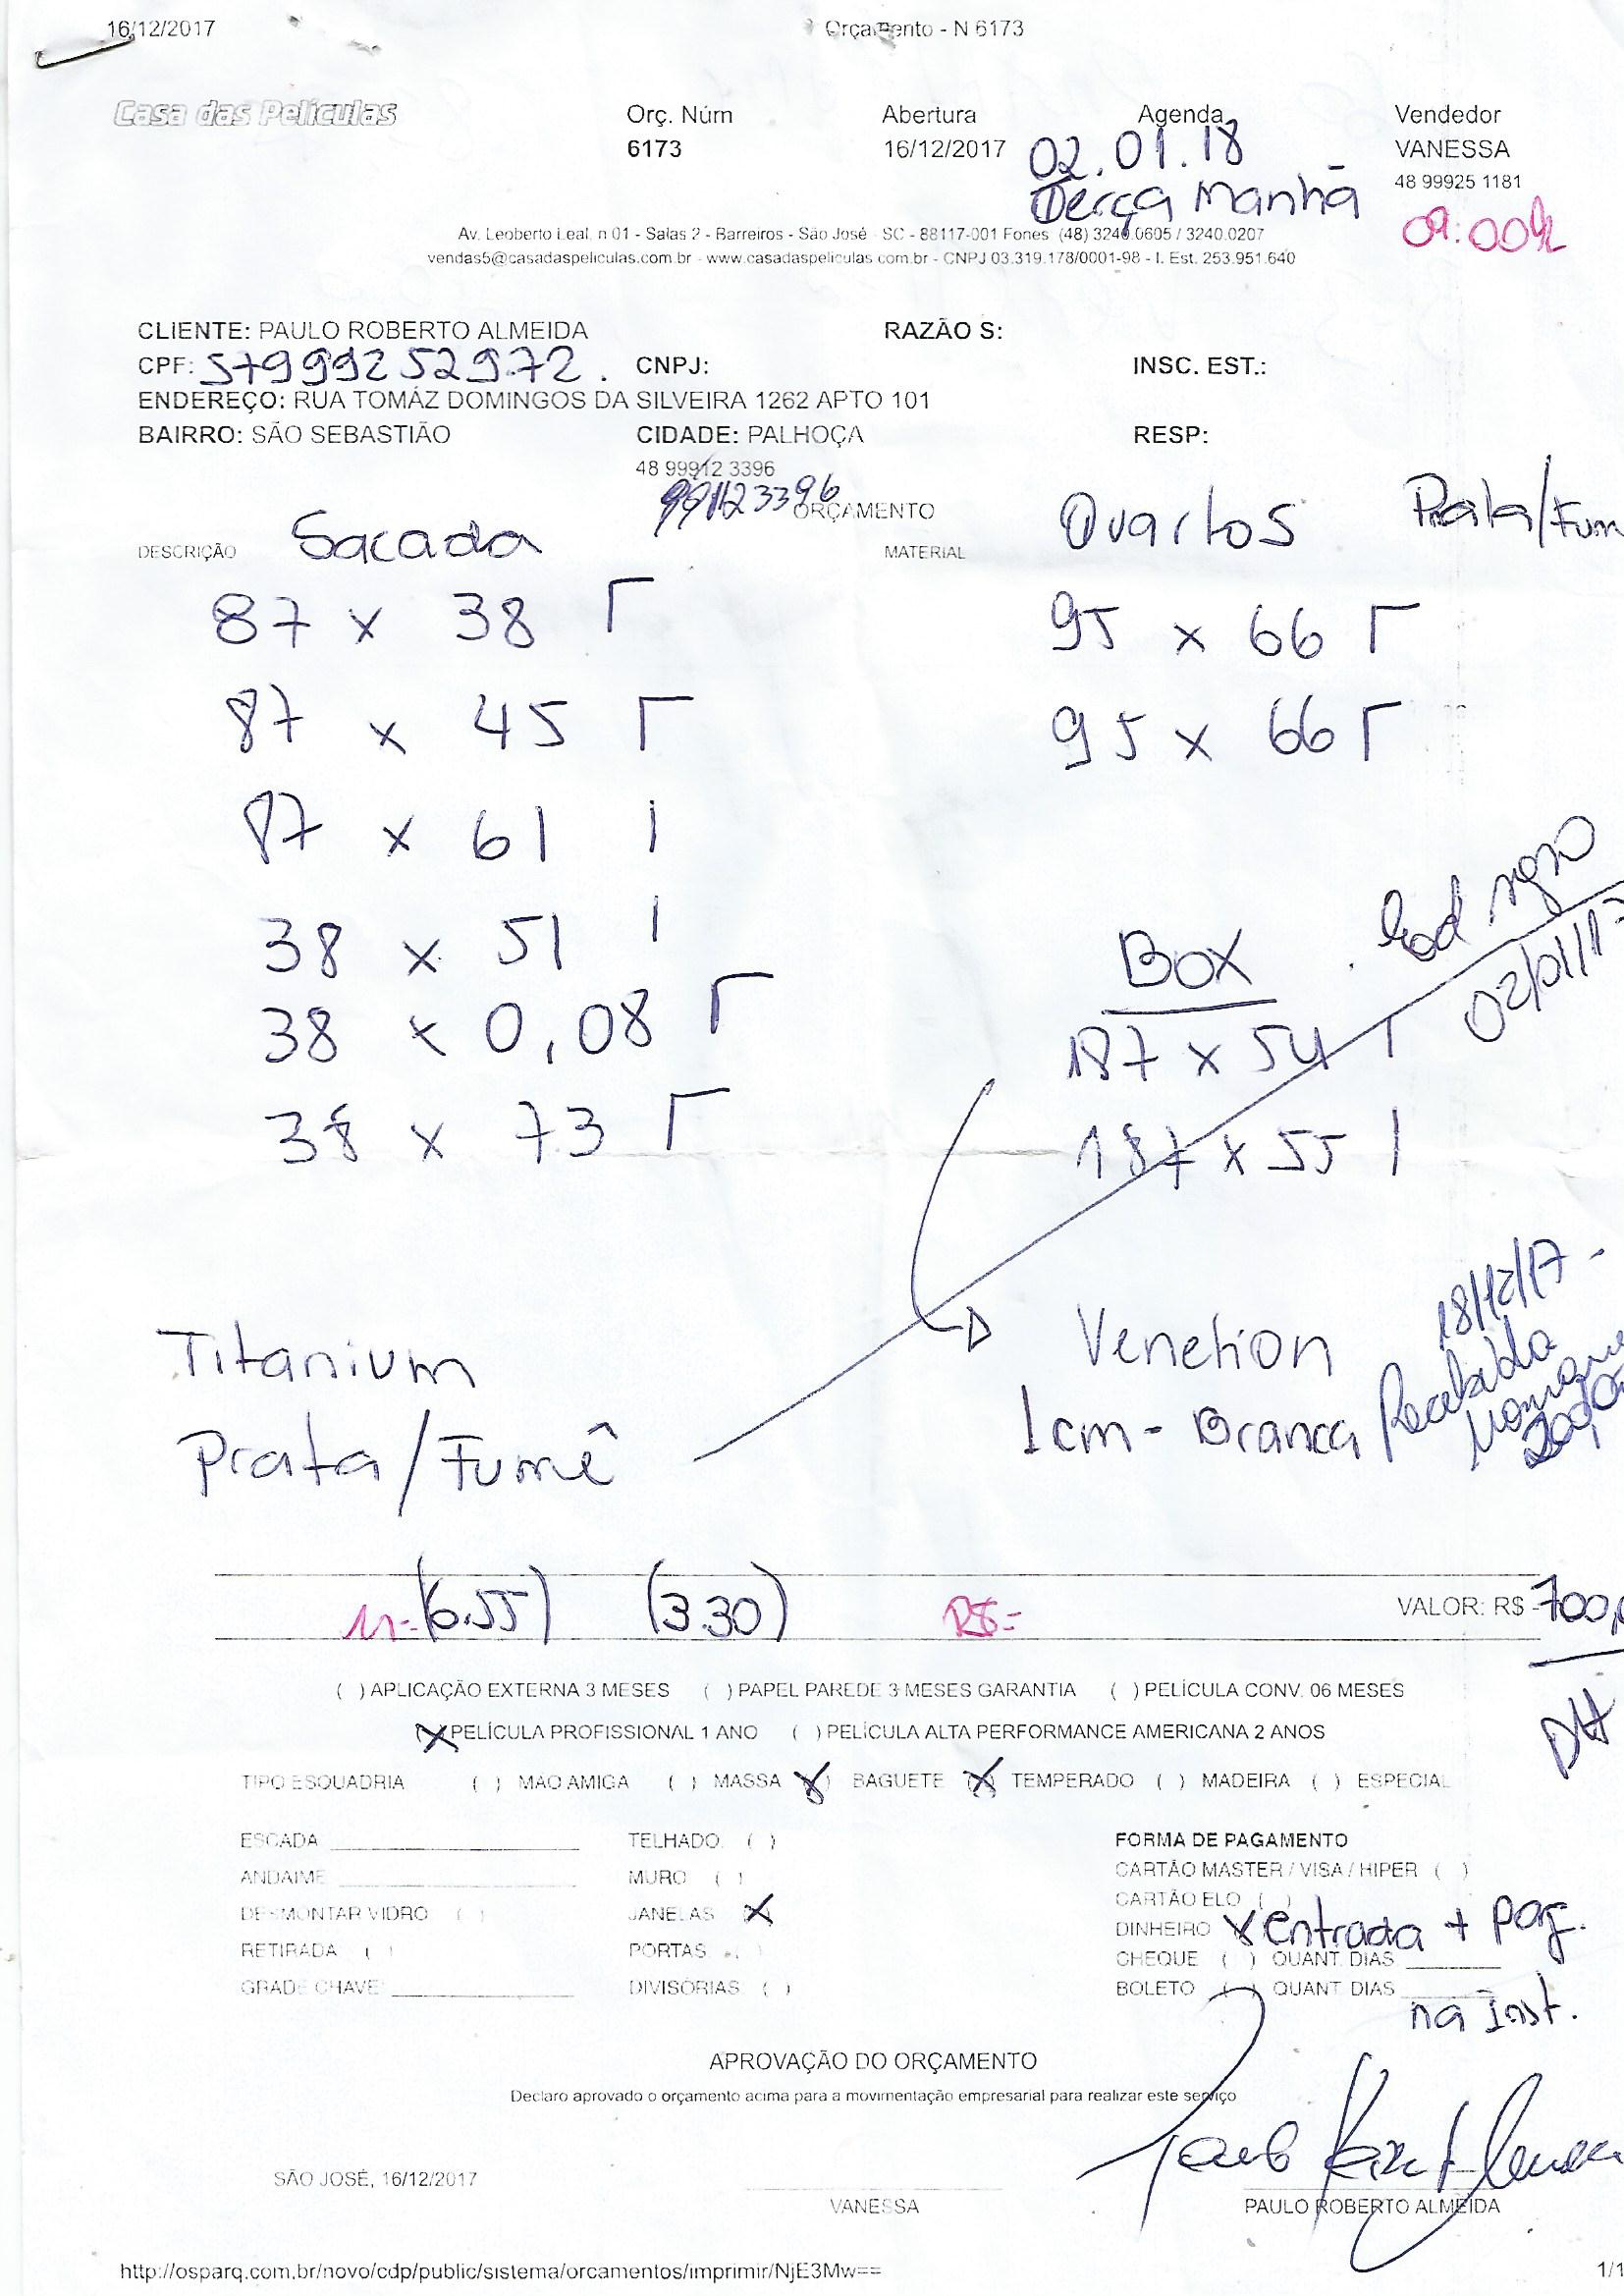 16/12/2017 Orçamento - N 6173
Casa das Películas Orç. Núm Abertura Agenda Vendedor
6173 16/12/2017 02.01.18 VANESSA
Terça Manhã 48 99925 1181
09:00h
Av. Leoberto Leal, n 01 - Salas 2 - Barreiros - São José - SC - 88117-001 Fones (48) 3240.0605 / 3240.0207
vendas5@casadaspeliculas.com.br - www.casadaspeliculas.com.br - CNPJ 03.319.178/0001-98 - I. Est. 253.951.640
CLIENTE: PAULO ROBERTO ALMEIDA RAZÃO S:
CPF: 57999252972. CNPJ: INSC. EST.:
ENDEREÇO: RUA TOMÁZ DOMINGOS DA SILVEIRA 1262 APTO 101
BAIRRO: SÃO SEBASTIÃO CIDADE: PALHOÇA RESP:
48 99912 3396
991123396 ORÇAMENTO
DESCRIÇÃO Sacada MATERIAL Quartos Prata/Fum
87 x 38 Γ 95 x 66 Γ
87 x 45 Γ 95 x 66 Γ
87 x 61 |
38 x 51 | Box
38 x 0,08 Γ 187 x 54 | 02/01/17
38 x 73 Γ 187 x 55 |
18/12/17 -
Titanium Venetion
Prata/Fumê 1cm - Branca
M= (6.55) (3.30) R$= VALOR: R$ 700,
DH
( ) APLICAÇÃO EXTERNA 3 MESES ( ) PAPEL PAREDE 3 MESES GARANTIA ( ) PELÍCULA CONV. 06 MESES
(X) PELÍCULA PROFISSIONAL 1 ANO ( ) PELÍCULA ALTA PERFORMANCE AMERICANA 2 ANOS
TIPO ESQUADRIA ( ) MAO AMIGA ( ) MASSA (X) BAGUETE (X) TEMPERADO ( ) MADEIRA ( ) ESPECIAL
ESCADA TELHADO ( ) FORMA DE PAGAMENTO
ANDAIME MURO ( ) CARTÃO MASTER / VISA / HIPER ( )
DESMONTAR VIDRO ( ) JANELAS (X) CARTÃO ELO ( )
RETIRADA ( ) PORTAS ( ) DINHEIRO X entrada + pag.
GRADE CHAVE DIVISÓRIAS ( ) CHEQUE ( ) QUANT. DIAS
BOLETO ( ) QUANT. DIAS
na Inst.
APROVAÇÃO DO ORÇAMENTO
Declaro aprovado o orçamento acima para a movimentação empresarial para realizar este serviço
SÃO JOSÉ, 16/12/2017
VANESSA PAULO ROBERTO ALMEIDA
http://osparq.com.br/novo/cdp/public/sistema/orcamentos/imprimir/NjE3Mw== 1/1